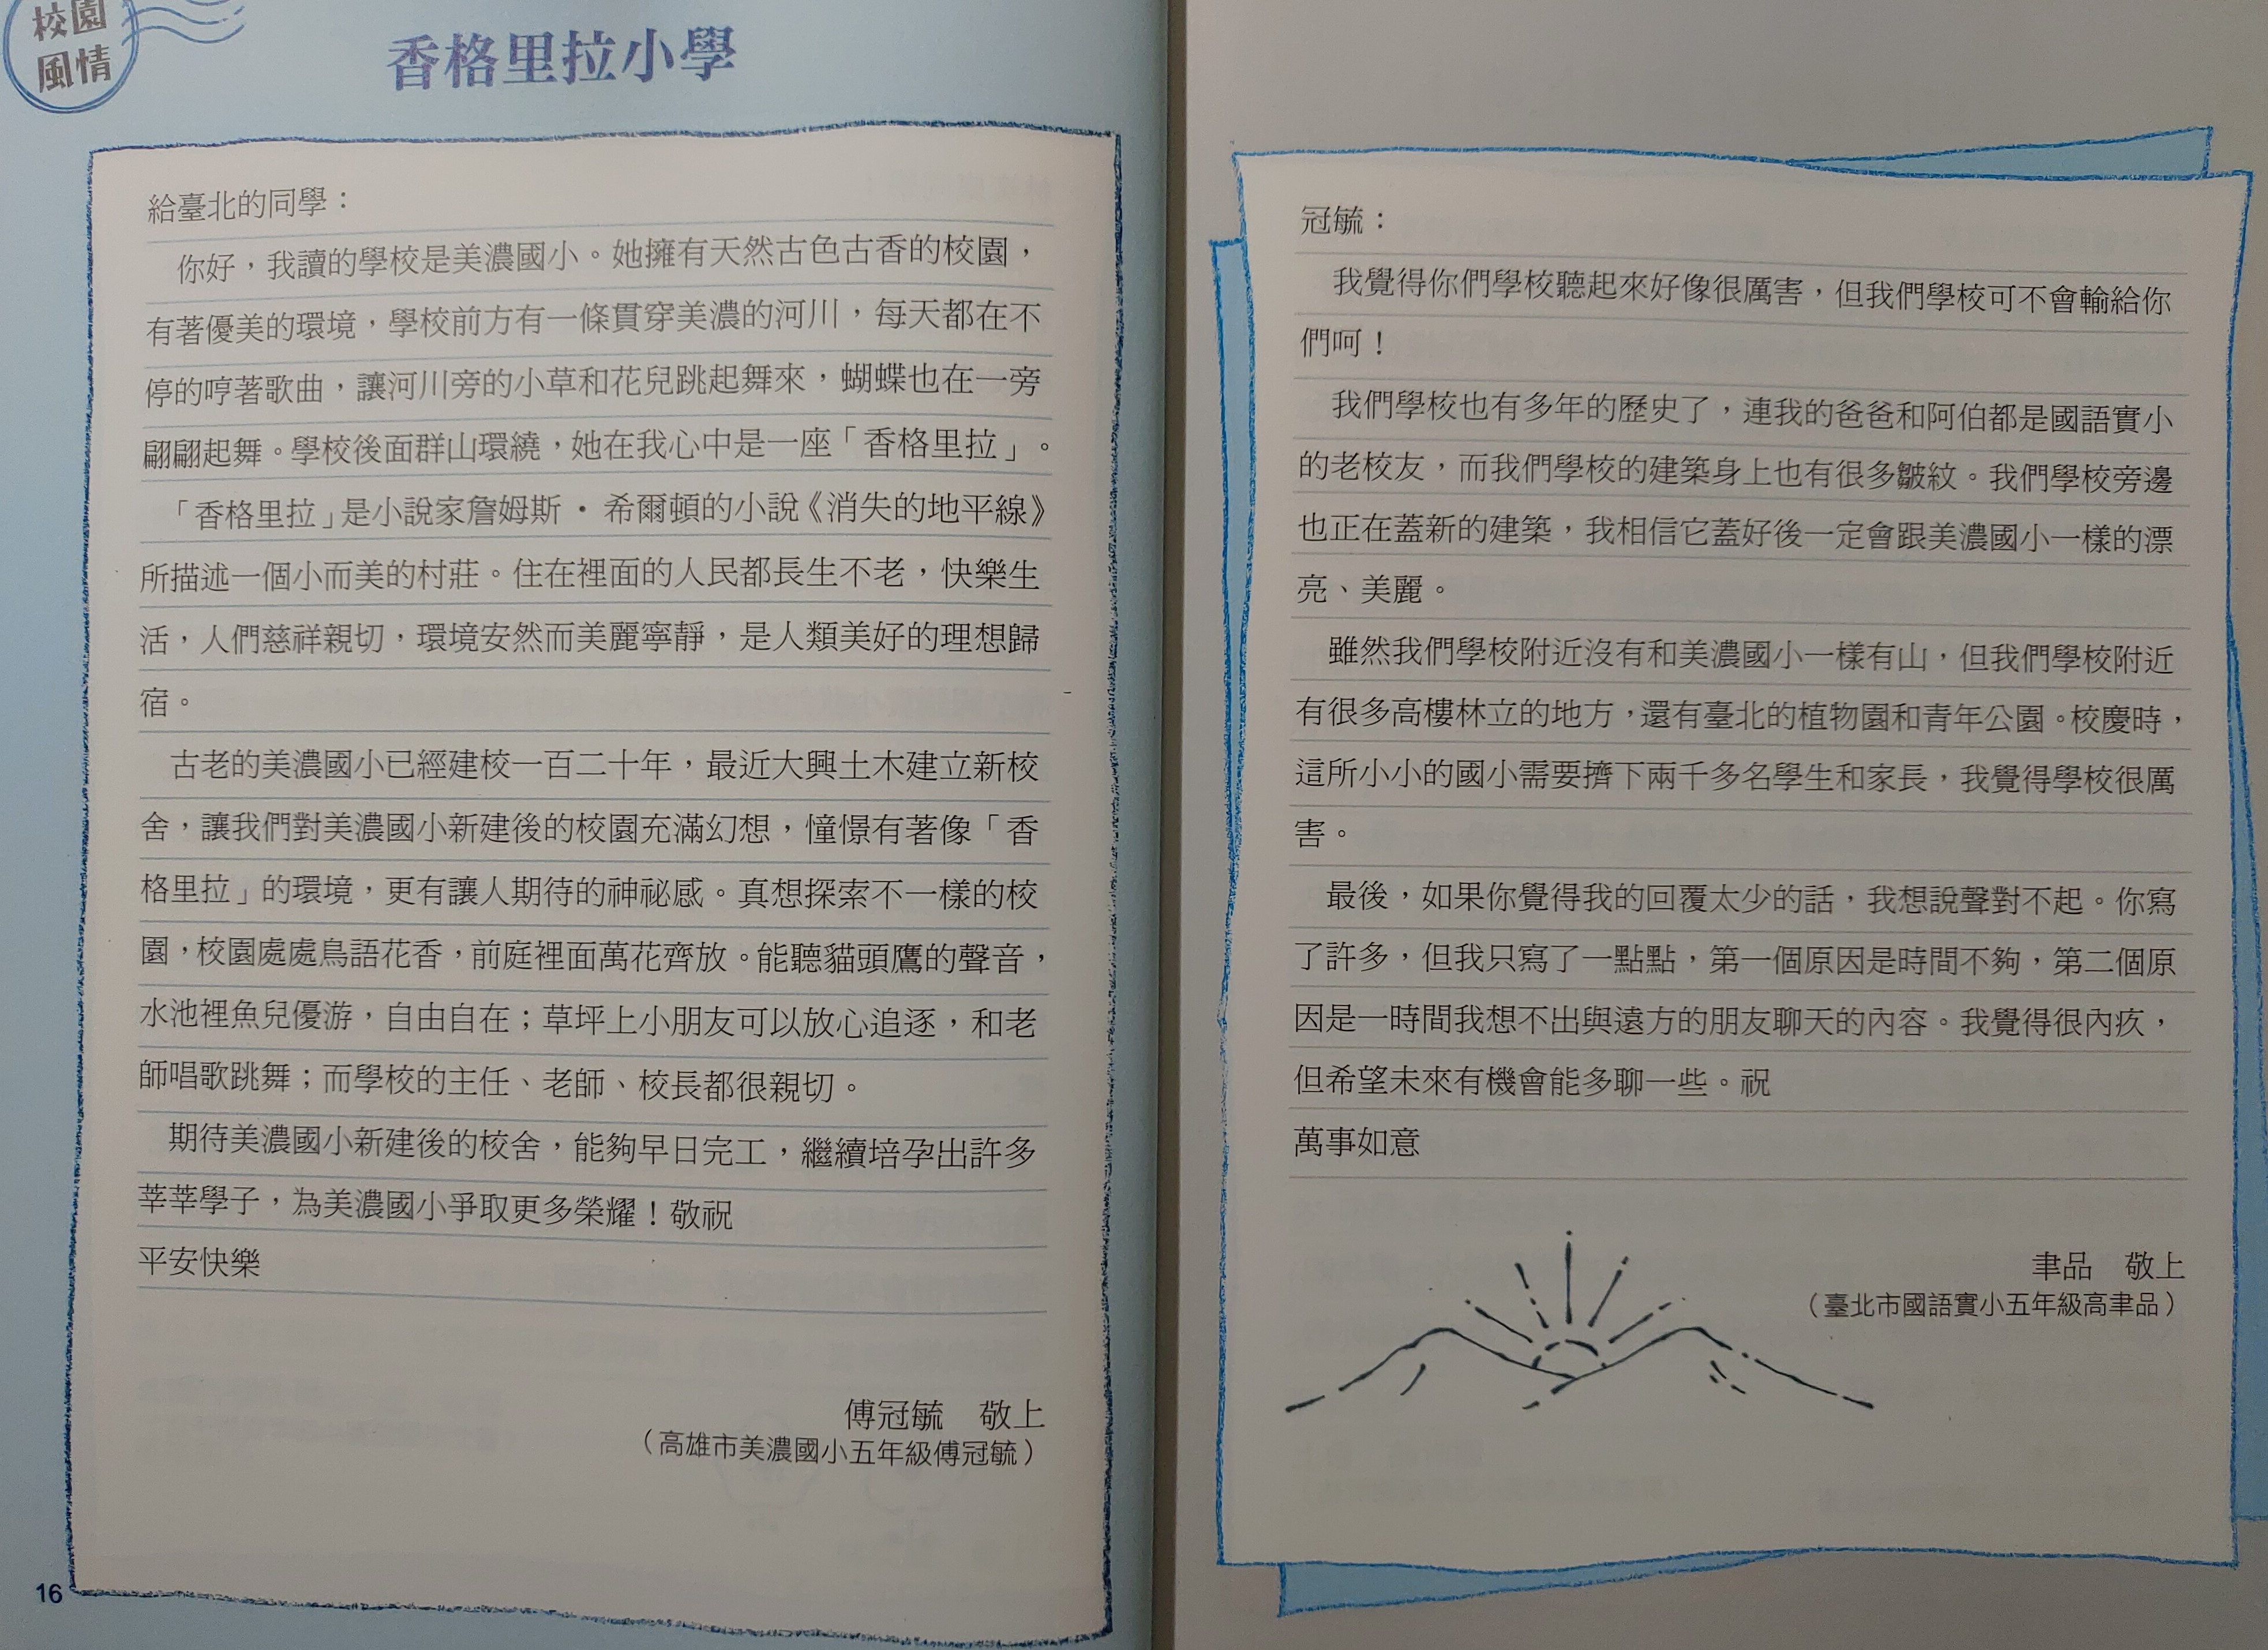 校園
風情
香格里拉小學
給臺北的同學：
你好，我讀的學校是美濃國小。她擁有天然古色古香的校園，
有著優美的環境，學校前方有一條貫穿美濃的河川，每天都在不
停的哼著歌曲，讓河川旁的小草和花兒跳起舞來，蝴蝶也在一旁
翩翩起舞。學校後面群山環繞，她在我心中是一座「香格里拉」。
「香格里拉」是小說家詹姆斯・希爾頓的小說《消失的地平線》
所描述一個小而美的村莊。住在裡面的人民都長生不老，快樂生
活，人們慈祥親切，環境安然而美麗寧靜，是人類美好的理想歸
宿。
古老的美濃國小已經建校一百二十年，最近大興土木建立新校
舍，讓我們對美濃國小新建後的校園充滿幻想，憧憬有著像「香
格里拉」的環境，更有讓人期待的神祕感。真想探索不一樣的校
園，校園處處鳥語花香，前庭裡面萬花齊放。能聽貓頭鷹的聲音，
水池裡魚兒優游，自由自在；草坪上小朋友可以放心追逐，和老
師唱歌跳舞；而學校的主任、老師、校長都很親切。
期待美濃國小新建後的校舍，能夠早日完工，繼續培孕出許多
莘莘學子，為美濃國小爭取更多榮耀！敬祝
平安快樂
傅冠毓　敬上
（高雄市美濃國小五年級傅冠毓）
16
冠毓：
我覺得你們學校聽起來好像很厲害，但我們學校可不會輸給你
們呵！
我們學校也有多年的歷史了，連我的爸爸和阿伯都是國語實小
的老校友，而我們學校的建築身上也有很多皺紋。我們學校旁邊
也正在蓋新的建築，我相信它蓋好後一定會跟美濃國小一樣的漂
亮、美麗。
雖然我們學校附近沒有和美濃國小一樣有山，但我們學校附近
有很多高樓林立的地方，還有臺北的植物園和青年公園。校慶時，
這所小小的國小需要擠下兩千多名學生和家長，我覺得學校很厲
害。
最後，如果你覺得我的回覆太少的話，我想說聲對不起。你寫
了許多，但我只寫了一點點，第一個原因是時間不夠，第二個原
因是一時間我想不出與遠方的朋友聊天的內容。我覺得很內疚，
但希望未來有機會能多聊一些。祝
萬事如意
聿品　敬上
（臺北市國語實小五年級高聿品）